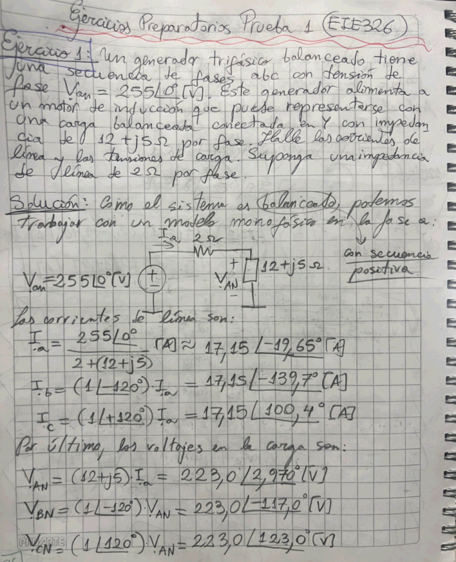 Ejercicios Preparatorios Prueba 1 (EIE326)
Ejercicio 1: Un generador trifásico balanceado tiene
una secuencia de fases abc con tensión de
fase Van = 255∠0° [V]. Este generador alimenta a
un motor de inducción que puede representarse con
una carga balanceada conectada en Y con impedan
cia de 12+j5 Ω por fase. Halle las corrientes de
línea y las tensiones de carga. Suponga una impedancia
de línea de 2 Ω por fase.
Solución: Como el sistema es balanceado, podemos
trabajar con un modelo monofásico en la fase a:
con secuencia
positiva
Ia 2 Ω
Van = 255∠0° [V] + - + VAN - 12+j5 Ω
Las corrientes de línea son:
Ia = 255∠0° / 2+(12+j5) [A] ≈ 17,15∠-19,65° [A]
Ib = (1∠-120°)·Ia = 17,15∠-139,7° [A]
Ic = (1∠+120°)·Ia = 17,15∠100,4° [A]
Por último, los voltajes en la carga son:
VAN = (12+j5)·Ia = 223,0∠2,970° [V]
VBN = (1∠-120°)·VAN = 223,0∠-117,0° [V]
VCN = (1∠120°)·VAN = 223,0∠123,0° [V]